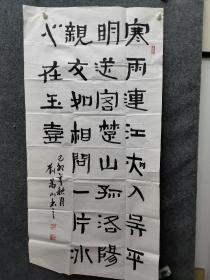 寒雨連江夜入吴平
明送客楚山孤洛陽
親友如相問一片冰
心在玉壺
己卯年秋月
山书